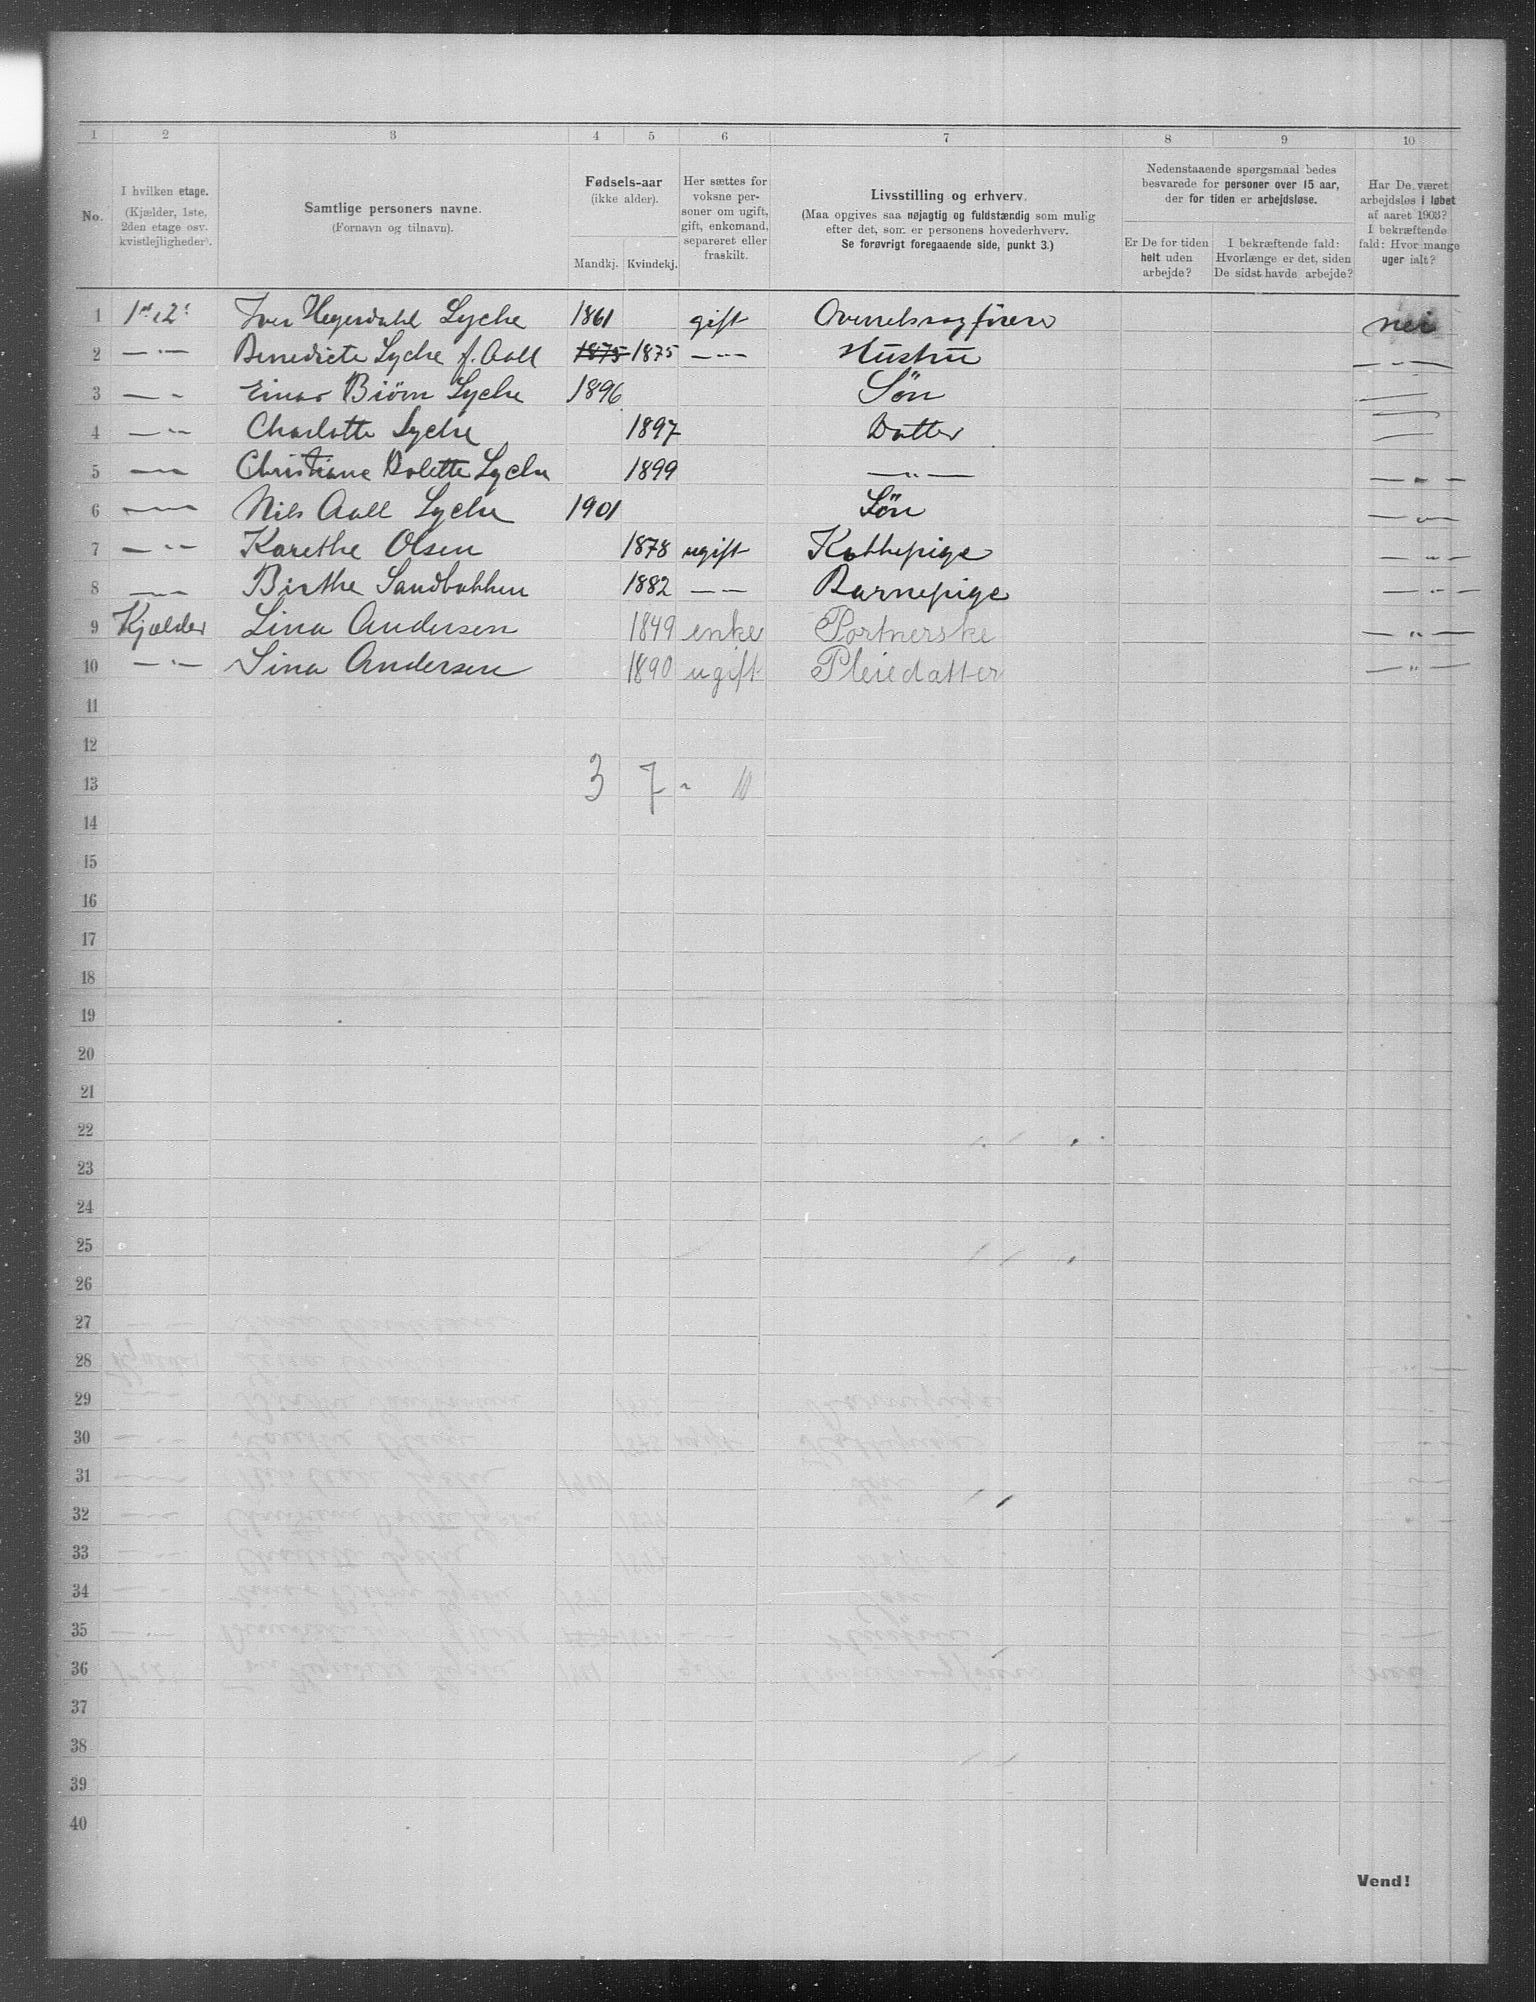 1 2 3 4 5 6 7 8 9 10
No.
I hvilken etage.
(Kjælder, 1ste,
2den etage osv.
kvistlejligheder).
Samtlige personers navne.
(Fornavn og tilnavn).
Fødsels-aar
(ikke alder).
Mandkj. Kvindekj.
Her sættes for
voksne per-
soner om ugift,
gift, enkemand,
separeret eller
fraskilt.
Livsstilling og erhverv.
(Maa opgives saa nøjagtig og fuldstændig som mulig
efter det, som er personens hovederhverv.
Se forøvrigt foregaaende side, punkt 3.)
Nedenstaaende spørgsmaal bedes
besvarede for personer over 15 aar,
der for tiden er arbejdsløse.
Er De for tiden
helt uden
arbejde?
I bekræftende fald:
Hvorlænge er det, siden
De sidst havde arbejde?
Har De været
arbejdsløs i løbet
af aaret 1903?
I bekræftende
fald: Hvor mange
uger ialt?
1 Iver Hegerdahl Lyche 1861 gift Overretssagfører nei
2 — " — Benedicte Lyche f. Aall 1875 1875 — " — Hustru — " —
3 — " — Einar Biørn Lyche 1896 Søn —
4 — " — Charlotte Lyche 1897 Datter —
5 — " — Christiane Bolette Lyche 1899 — " — — " —
6 — " — Nils Aall Lyche 1901 Søn — " —
7 — " — Karethe Olsen 1878 ugift Kokkepige — " —
8 — " — Birthe Sandbakken 1882 — " — Barnepige — " —
9 Kjælder Lina Andersen 1849 enke Portnerske — " —
10 — " — Lina Andersen 1890 ugift Pleiedatter — " —
11
12
13 3 7 - 10
14
15
16
17
18
19
20
21
22
23
24
25
26
27
28
29
30
31
32
33
34
35
36
37
38
39
40
Vend!